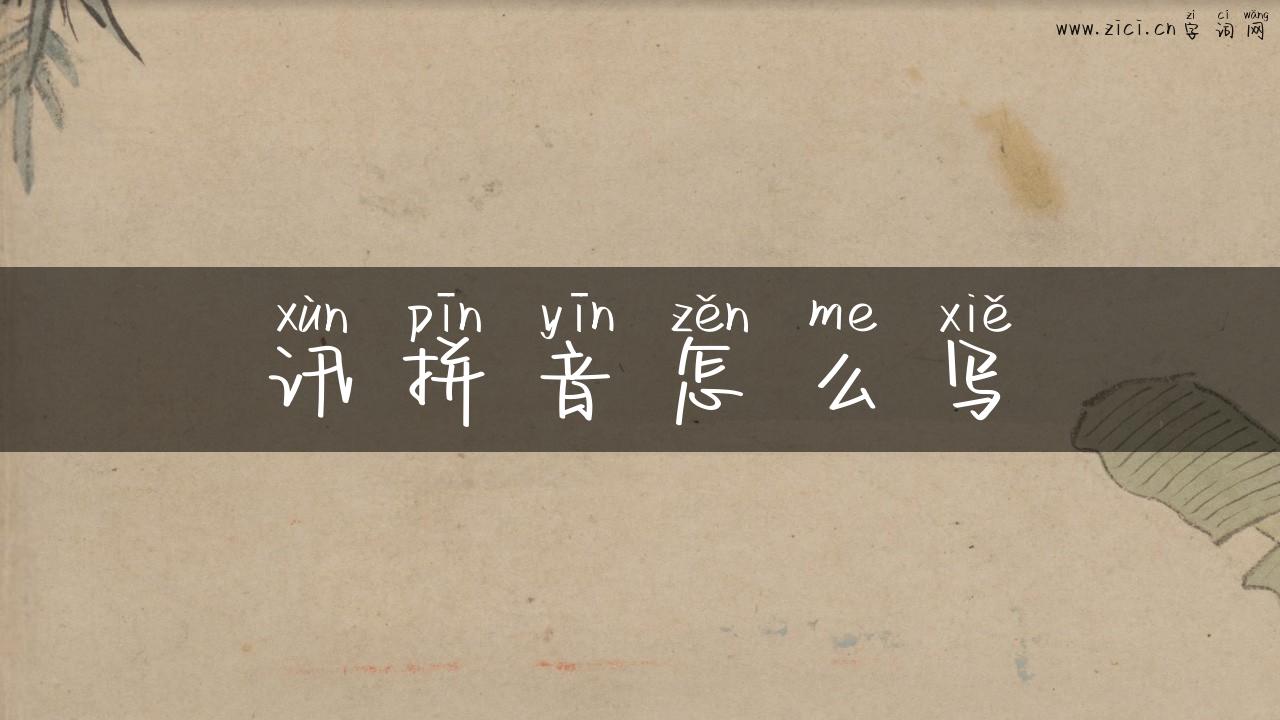 zì cí wǎng
www.zici.cn 字 词 网
xùn pīn yīn zěn me xiě
讯 拼 音 怎 么 写